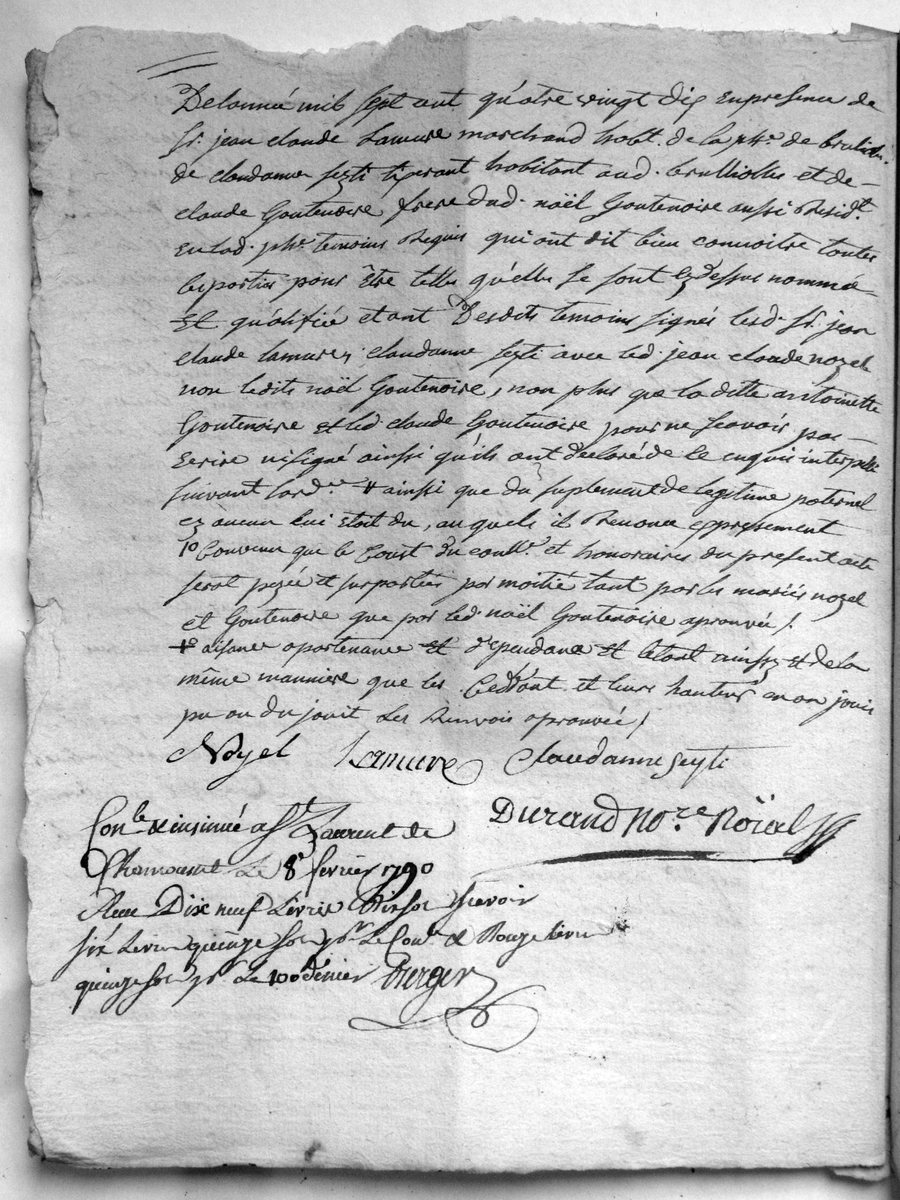 De lanneé mil sept cent qu'atre vingt dix en presence de
Sr. jean claude Lamure marchand habt. de la phe. de
de claudanne seyti tixerant habitant aud. brulliolles et de
claude Goutenoire frere dud. nöël Goutenoire aussi Residt.
en lad. phe. temoins Requis qui ont dit bien connoitre toutes
les parties pour être telles qu'elles se sont cy dessus nommée
Et qu'alifiée et ont Desdits temoins signés lesd. Sr. jean
claude Lamure, claudanne seyti avec led. jean claude nozel
non ledits nöël Goutenoire, non plus que la ditte antoinette
Goutenoire et led. claude Goutenoire pour ne scavoir pas
Ecrire ni signé ainsi qu'ils ont declaré de ce enquis interpellé
suivant lord.ce # ainsi que du suplement de legitime paternel
cy aucun lui etoit du, au quels il Renonce expressement
1o Convenu que le Coust du conlle. et honoraires du present acte
serat payée et surportées par moitié tant par les mariés nozel
et Goutenoire que par led. nöël Goutenoire aprouvée /.
# aisance apartenance et d'ependance Et letout ainsy et de la
même manniere que les Cedant et leurs hauteurs en on jouis
pu ou du jouit Les Renvois aprouvée /
Noyel Lamure Claudanne Seyti
Conle & insinué a St Laurent de
Chamousset Le 8e fevrier 1790
Durand No.re Roïal
Reçu Dix neuf Livres Dix sols scavoir
six Livres quinze sols pr Le Conle &
quinze sols pr Le 100e denier Berger